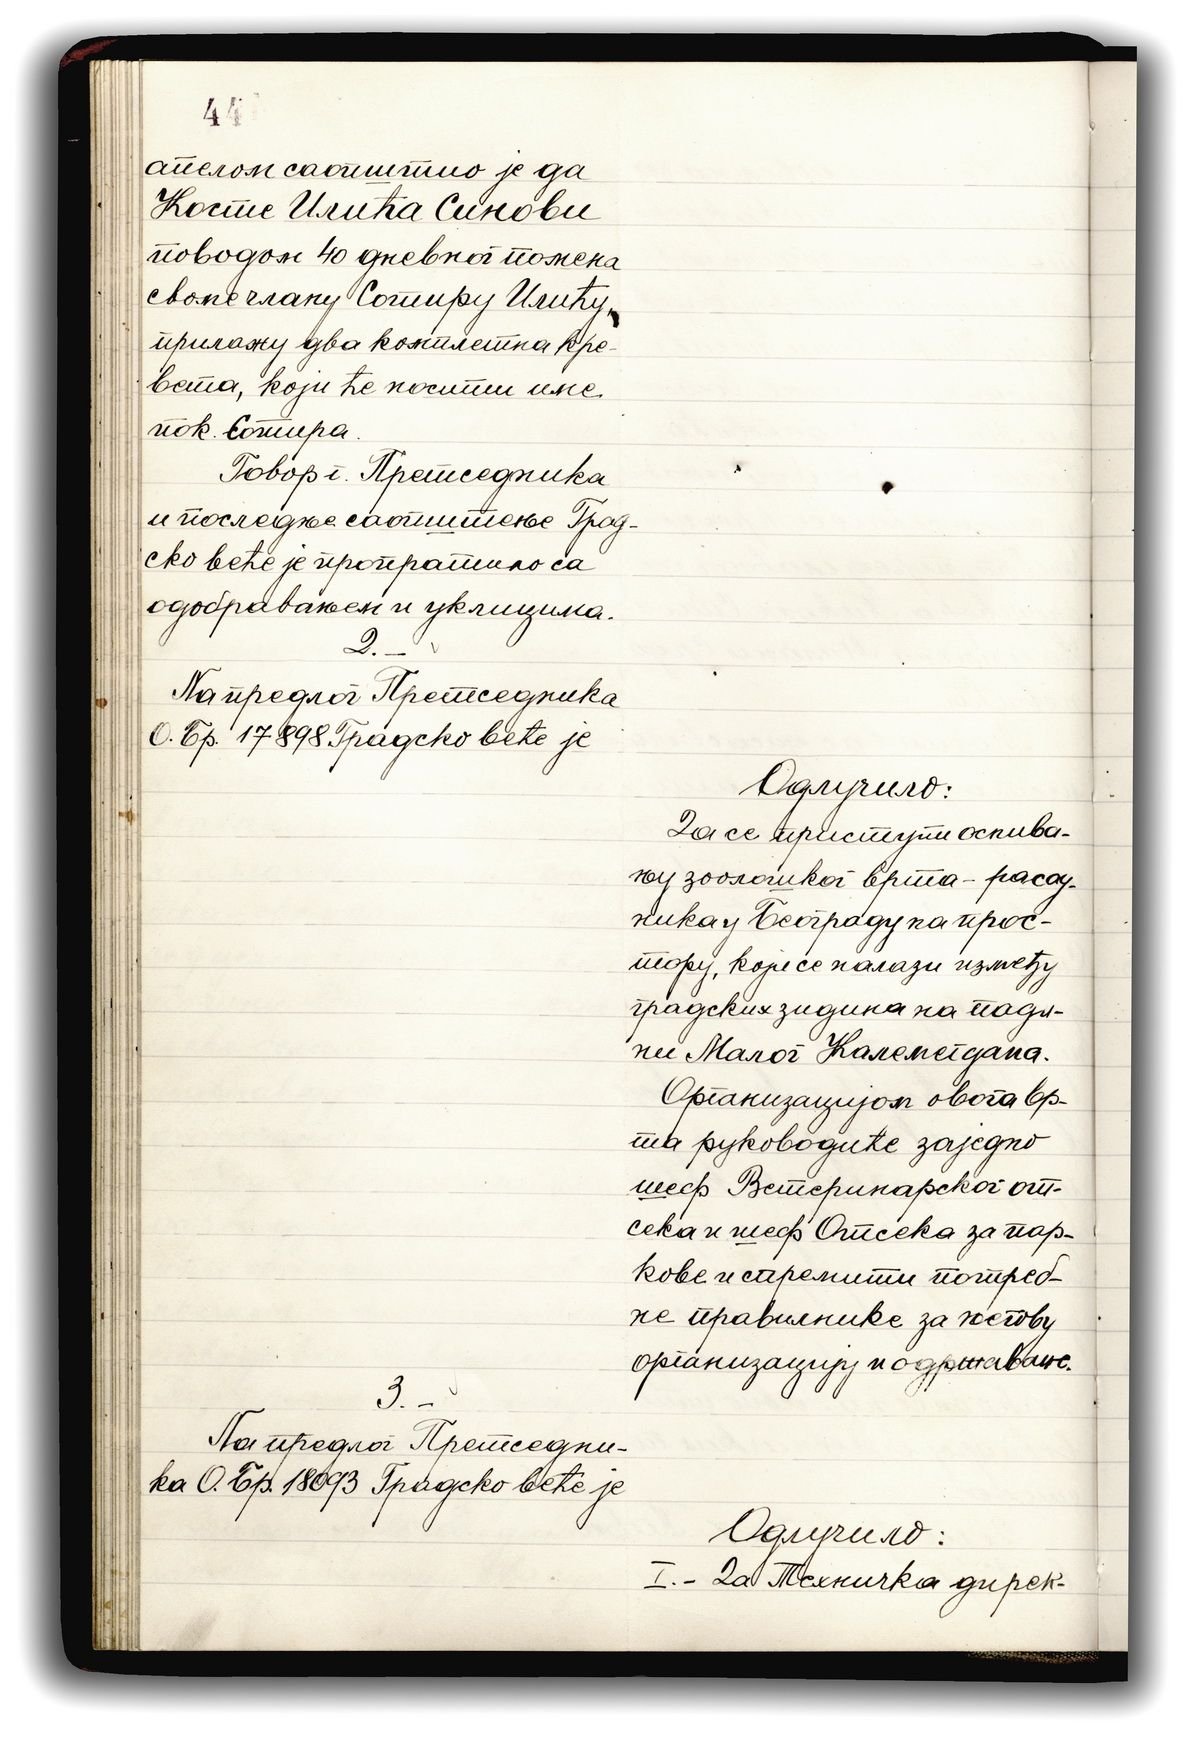 44
апелом саопштио је да
Косте Илића Синови
поводом 40 дневног помена
своме члану Сотиру Илићу,
прилажу два комплетна кре-
вета, који ће носити име
пок. Сотира.
Говор г. Претседника
и последње саопштење Град-
ско веће је пропратило са
одобравањем и уклицима.
2.–
На предлог Претседника
О. Бр. 17898 Градско веће је
Одлучило:
Да се приступи оснива-
њу зоолошког врта – расад-
ника у Београду на прос-
тору, који се налази између
градских зидина на падл-
ни Малог Калемегдана.
Организацијом овога вр-
та руководиће заједно
шеф Ветеринарског от-
сека и шеф Отсека за пар-
кове и спремити потреб-
не правилнике за његову
организацију и одржавање.
3.–
На предлог Претседни-
ка О. Бр. 18093 Градско веће је
Одлучило:
I.– Да Техничка дирек-